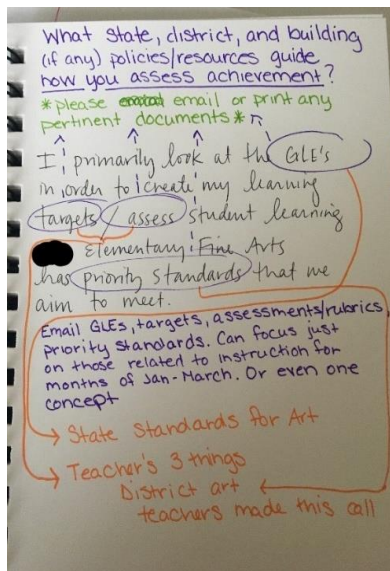 What State, district, and building
(if any) policies/resources guide
how you assess achievement?
*please email or print any
pertinent documents*
I primarily look at the GLE's
in order to create my learning
targets / assess student learning
Elementary Fine Arts
has priority standards that we
aim to meet.
Email GLEs, targets, assessments/rubrics,
priority standards. Can focus just
on those related to instruction for
months of Jan-March. Or even one
concept
→ State Standards for Art
→ Teacher's 3 things
District art
teachers made this call